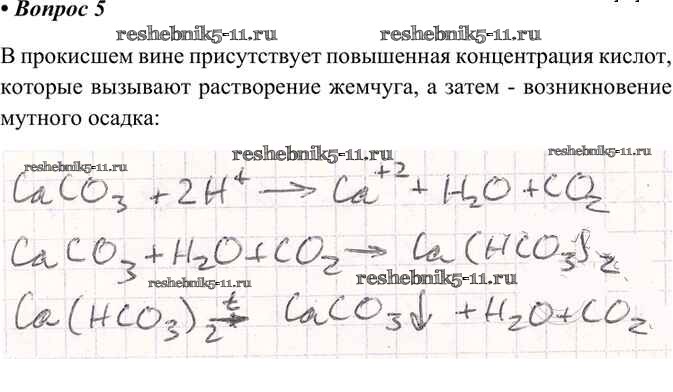 • Вопрос 5
reshebnik5-11.ru reshebnik5-11.ru
В прокисшем вине присутствует повышенная концентрация кислот,
которые вызывают растворение жемчуга, а затем - возникновение
мутного осадка:
reshebnik5-11.ru reshebnik5-11.ru
CaCO₃ + 2H⁺ → Ca⁺² + H₂O + CO₂
CaCO₃ + H₂O + CO₂ → Ca(HCO₃)₂
reshebnik5-11.ru reshebnik5-11.ru
Ca(HCO₃)₂ t→ CaCO₃↓ + H₂O + CO₂